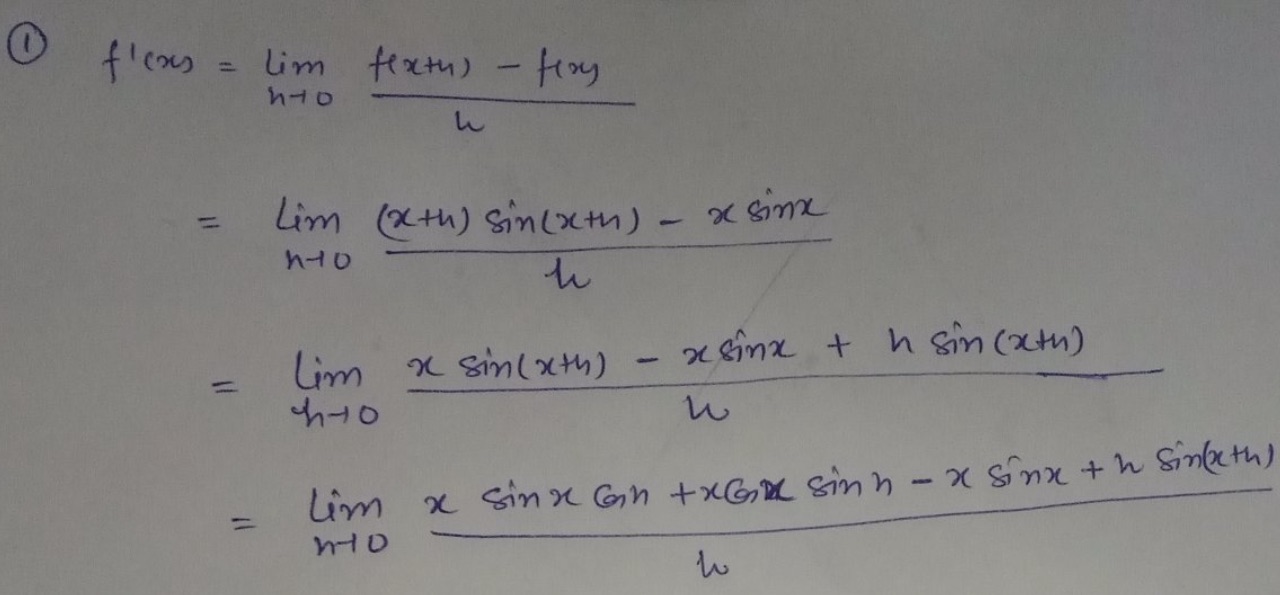 ① f'(x) = lim h→0 (f(x+h) - f(x)) / h
= lim h→0 ((x+h) sin(x+h) - x sinx) / h
= lim h→0 (x sin(x+h) - x sinx + h sin(x+h)) / h
= lim h→0 (x sinx cosh + x cosx sinh - x sinx + h sin(x+h)) / h